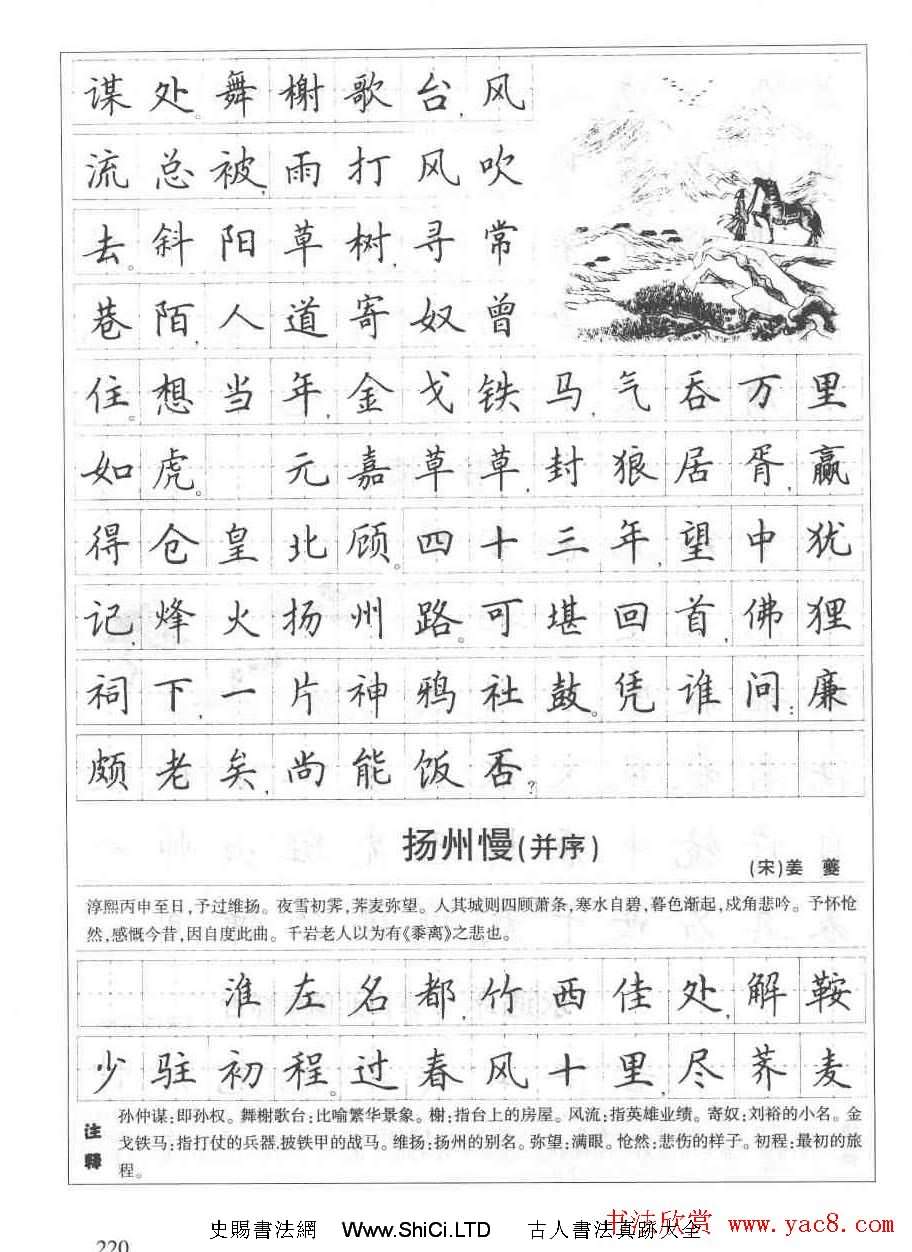 谋处。舞榭歌台,风
流总被,雨打风吹
去。斜阳草树,寻常
巷陌,人道寄奴曾
住。想当年,金戈铁马,气吞万里
如虎。 元嘉草草,封狼居胥,赢
得仓皇北顾。四十三年,望中犹
记,烽火扬州路。可堪回首,佛狸
祠下,一片神鸦社鼓。凭谁问:廉
颇老矣,尚能饭否?
扬州慢(并序)
(宋)姜 夔
淳熙丙申至日,予过维扬。夜雪初霁,荠麦弥望。人其城则四顾萧条,寒水自碧,暮色渐起,戍角悲吟。予怀怆
然,感慨今昔,因自度此曲。千岩老人以为有《黍离》之悲也。
淮左名都,竹西佳处,解鞍
少驻初程。过春风十里,尽荠麦
注释
孙仲谋:即孙权。舞榭歌台:比喻繁华景象。榭:指台上的房屋。风流:指英雄业绩。寄奴:刘裕的小名。金
戈铁马:指打仗的兵器,披铁甲的战马。维扬:扬州的别名。弥望:满眼。怆然:悲伤的样子。初程:最初的旅
程。
220
史賜書法網 Www.ShiCi.LTD 古人書法真跡大全
书法欣赏 www.yac8.com